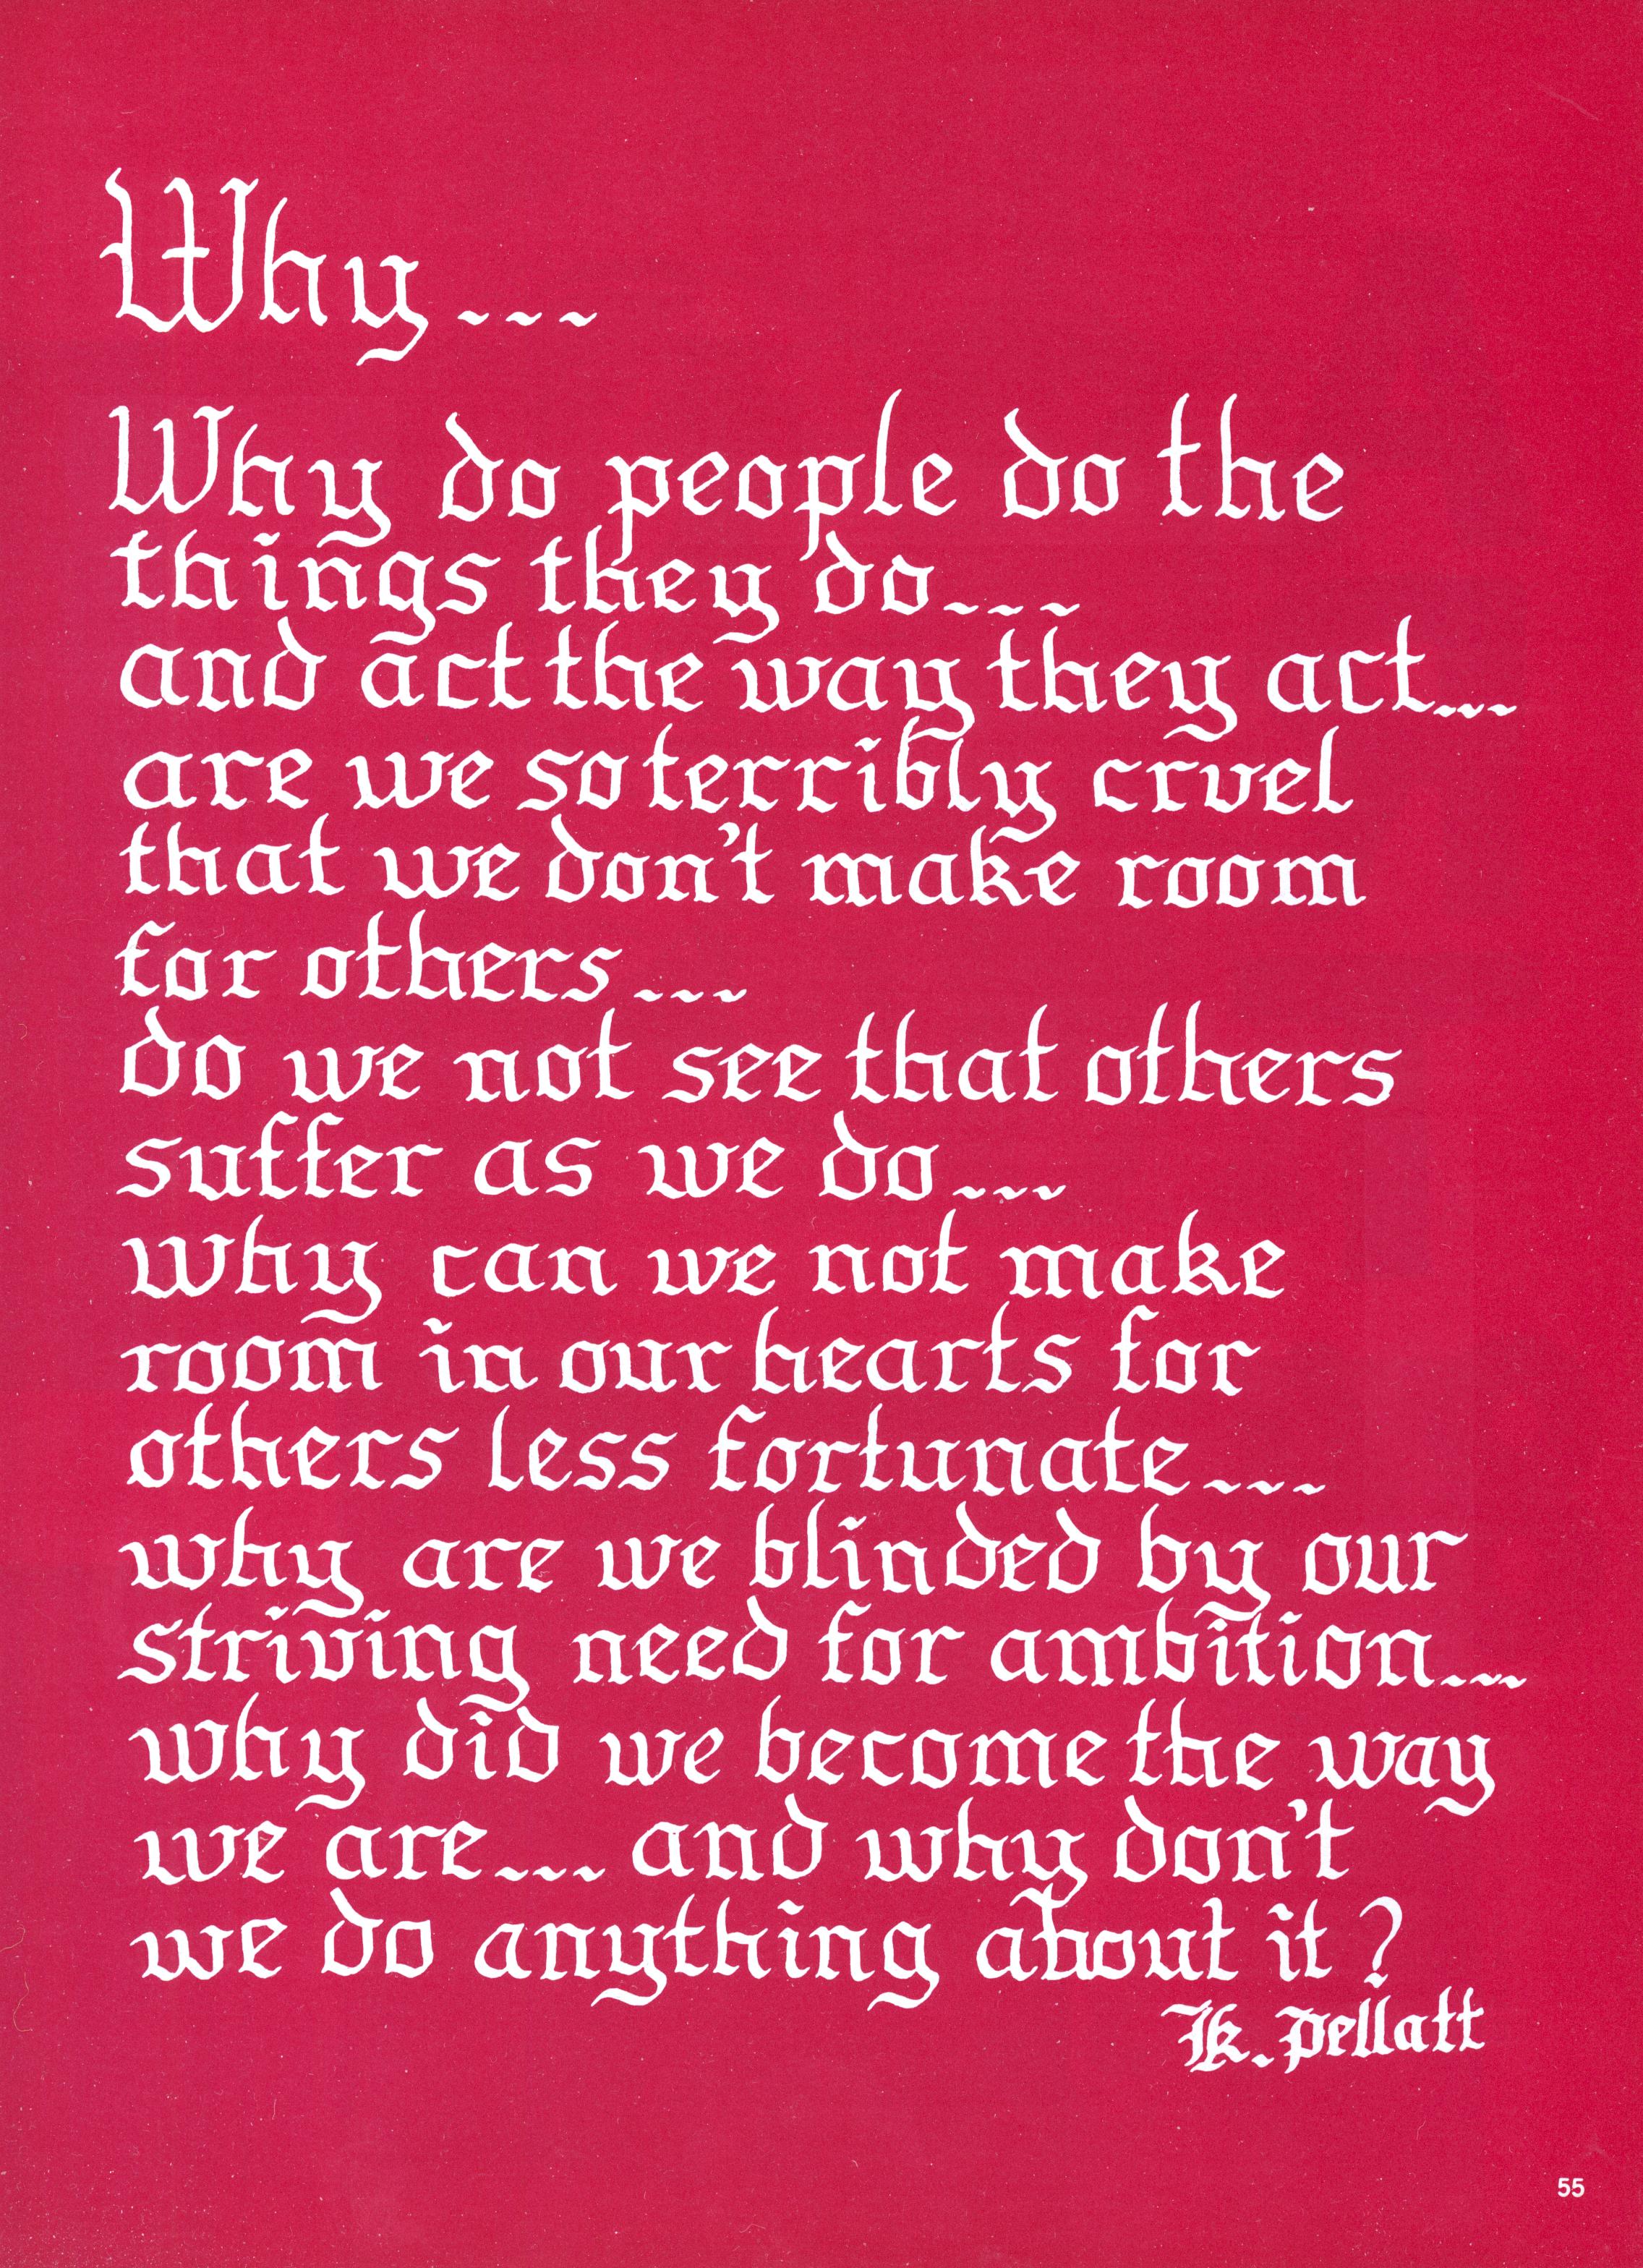 Why...
Why do people do the
things they do...
and act the way they act...
are we so terribly cruel
that we don't make room
for others...
do we not see that others
suffer as we do...
why can we not make
room in our hearts for
others less fortunate...
why are we blinded by our
striving need for ambition...
why did we become the way
we are... and why don't
we do anything about it?
K. Pellatt
55